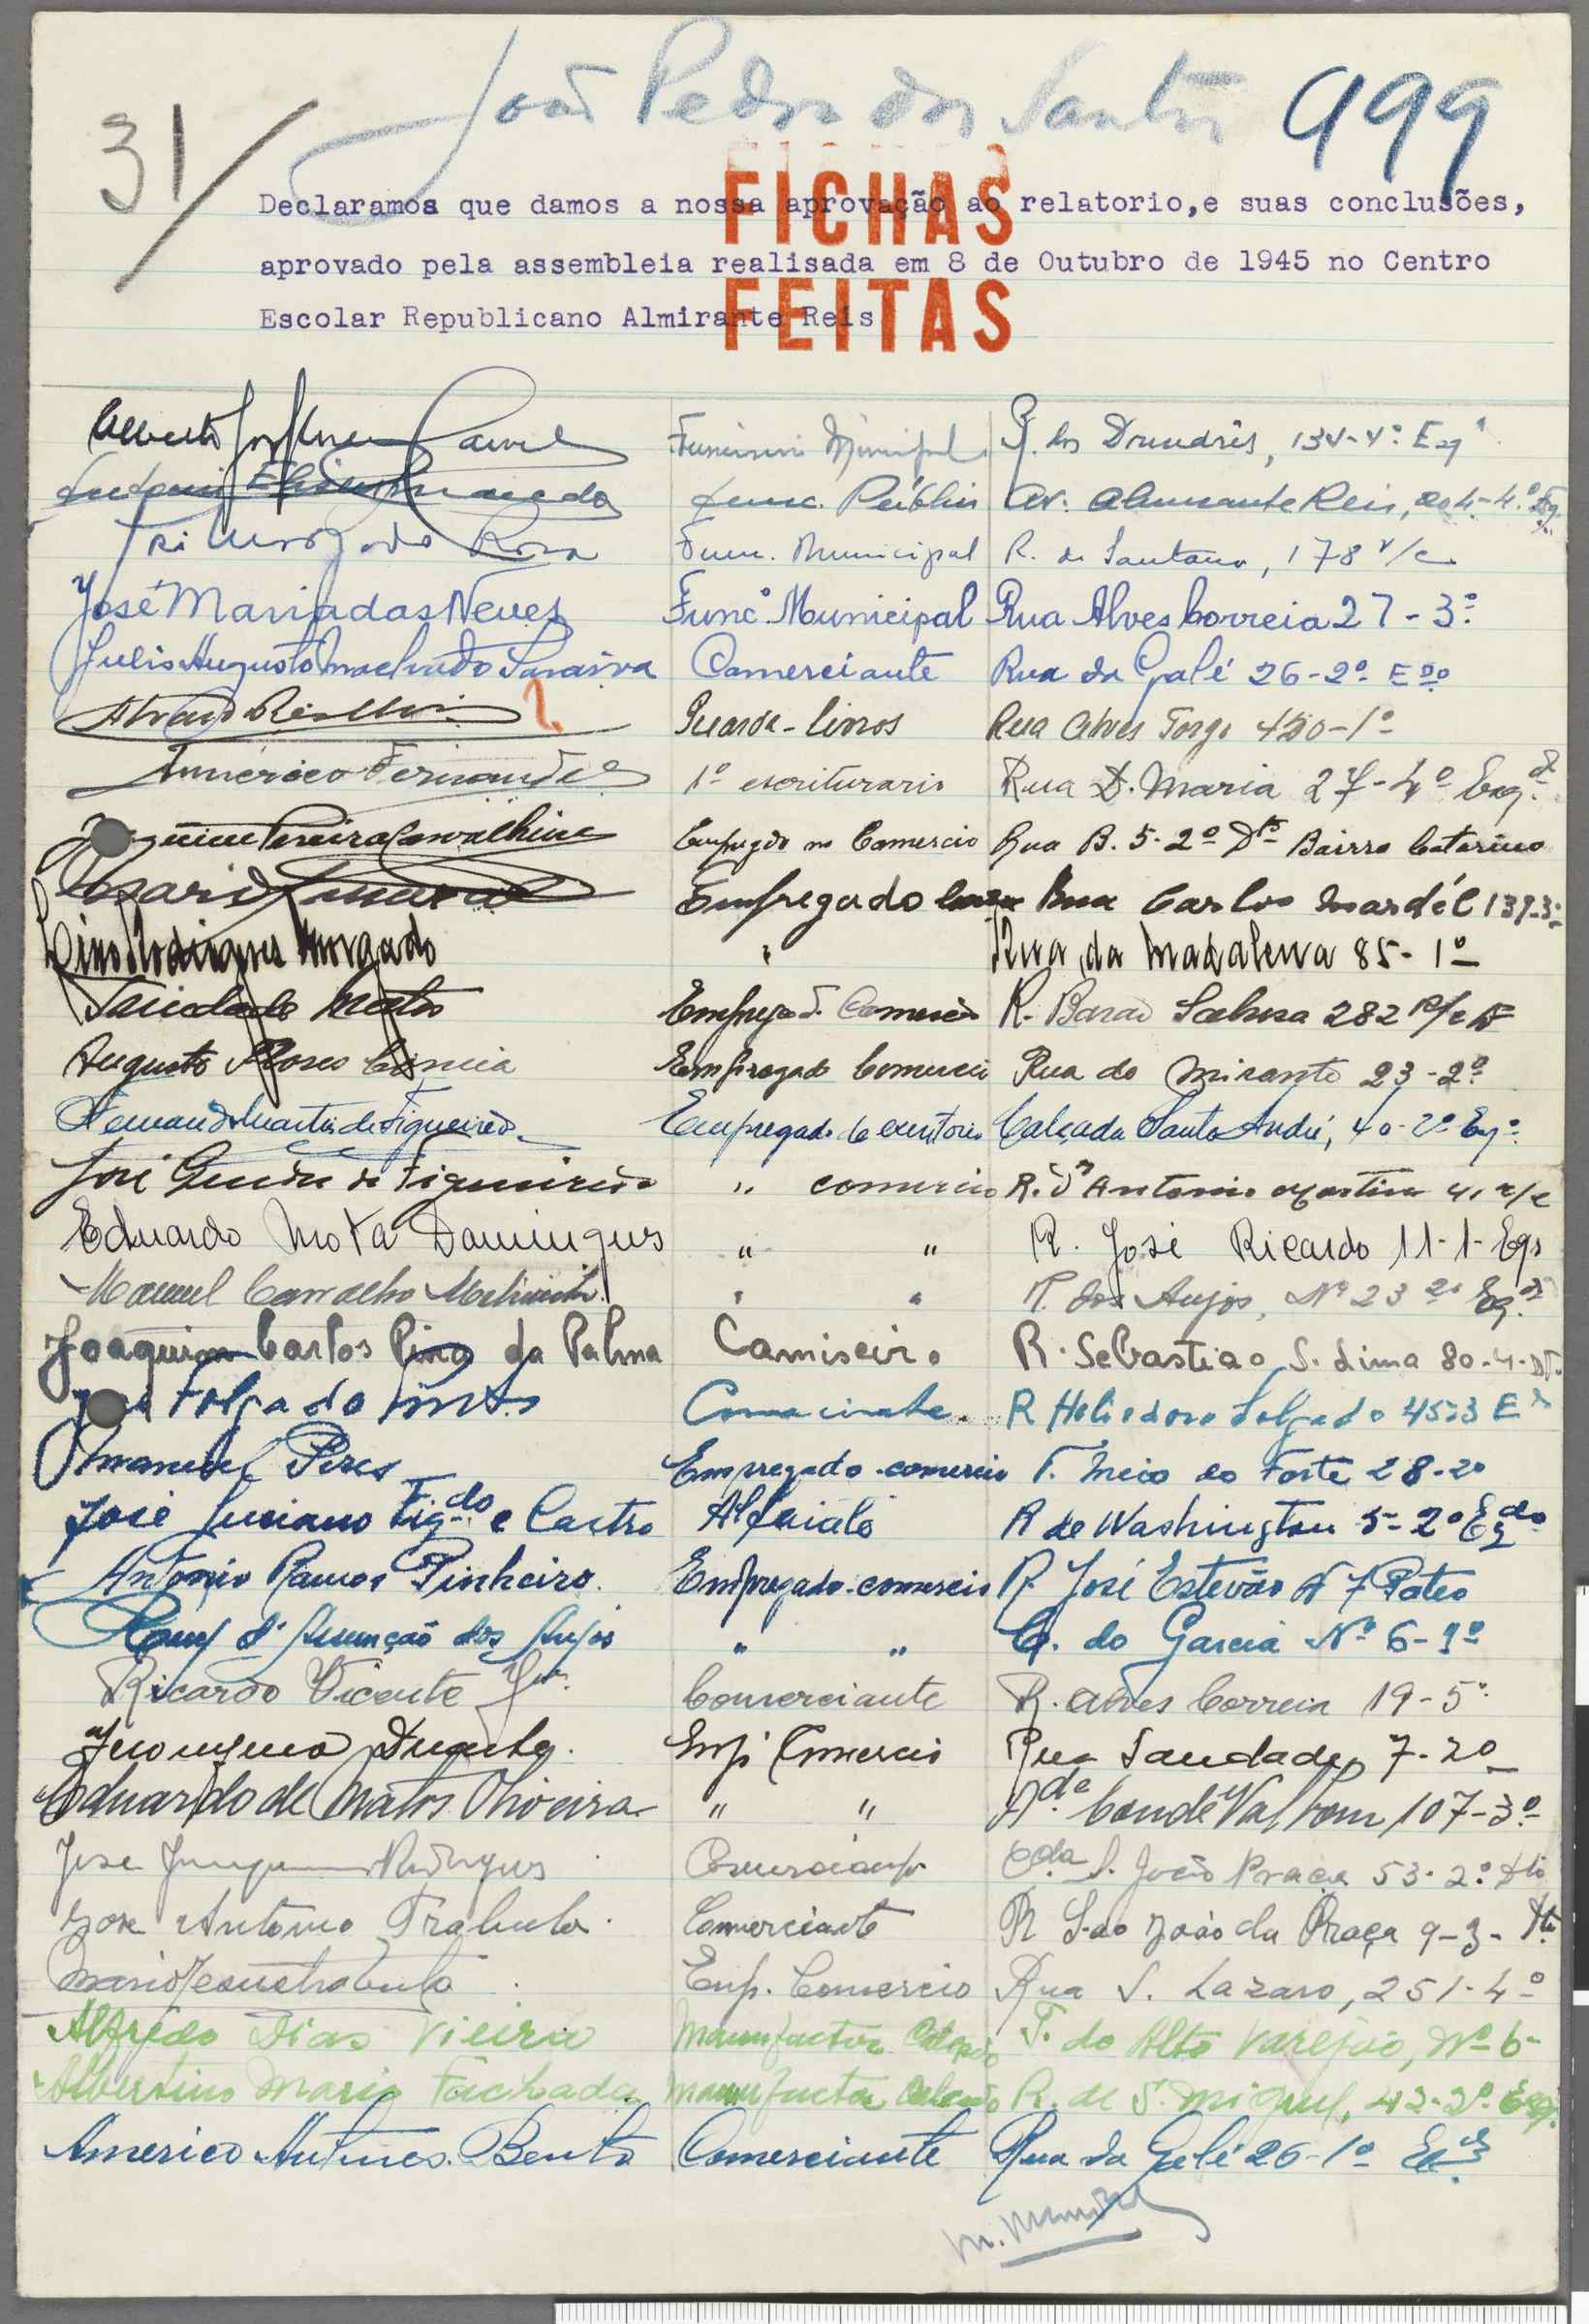 João Pedro dos Santos 999
31/
FICHAS
FEITAS
Declaramos que damos a nossa aprovação ao relatorio,e suas conclusões,
aprovado pela assembleia realisada em 8 de Outubro de 1945 no Centro
Escolar Republicano Almirante Reis
Alberto 134-4º Esqº
Func. Publico Av. Almirante Reis, 4º
Rosa Func. Municipal R. de Santana, 178 r/c
José Maria das Neves Funcº Municipal Rua Alves Correia 27-3º
Julio Augusto Machado Saraiva Comerciante Rua da Galé 26-2º Edo
Guarda-livros Rua Alves Torgo 450-1º
Américo Fernandes 1º escriturario Rua D. Maria 27-4º Esq.
Joaquim Pereira Carvalhinho Empregdo no Comercio Rua B. 5-2º Dto Bairro Catarino
Empregado Rua Carlos Mardél 137-3º
Rodrigues Morgado " Rua da Madalena 85-1º
Trindade Matos Empregado Comercio R. Barão Sabrosa 282 r/c D
Augusto Empregado Comercio Rua do Mirante 23-2º
Fernando Martins de Figueiredo Empregado de escritorio Calçada Santo André, 40-2º Esqº
José de Figueiredo " comercio R. António r/c
Eduardo Mota Domingues " " R. José Ricardo 11-1-Eqº
Manuel Carvalho " " T. dos Anjos, Nº 23 2º Esq.
Joaquim Carlos Pina da Palma Camiseiro R. Sebastião S. Lima 80-4-Dt.
José Folgado Comerciante. R Heliodoro Salgado 45-3 E
Manuel Peres Empregado-comercio T. Meio do Forte 28-2º
José Luciano Figdo e Castro Alfaiate R de Washington 5-2º Eqdo
António Ramos Pinheiro. Empregado-comercio R. José Estevão Nº 7 Pateo
Ruy d'Assunção dos Anjos " " C. do Garcia Nº 6-1º
Ricardo Vicente Jor. Comerciante R. Alves Correia 19-5º
Jeronymo Duarte. Empº Comercio Rua Saudade, 7-2º
Eduardo de Matos Oliveira " " Ada Conde Valbom 107-3º
José Joaquim Rodrigues Comerciante Cda S. João Praça 53-2º Dto
José Antonio Trabulo. Comerciante R São João da Praça 9-3-Dto
Mario Jesus Trabulo Emp. Comercio Rua S. Lazaro, 251-4º
Alfredo Dias Vieira Manufactor Calçado T. do Alto Varejão, Nº 6-
Albertino Mario Fachada Manufactor Calçado R. de S. Miguel, 42-2º Esq.
Americo Antunes Bento Comerciante Rua da Galé 26-1º